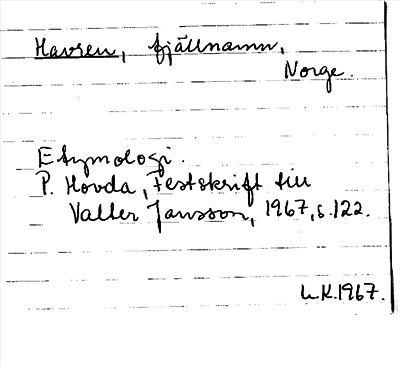 Havren, fjällnamn,
Norge.
Etymologi.
P. Hovda, Festskrift till
Valter Jansson, 1967, s. 122.
L.K. 1967.